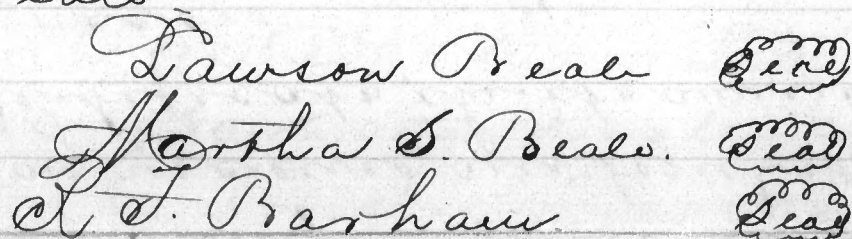 Lawson Beale Seal
Martha S. Beale. Seal
R. F. Barham Seal